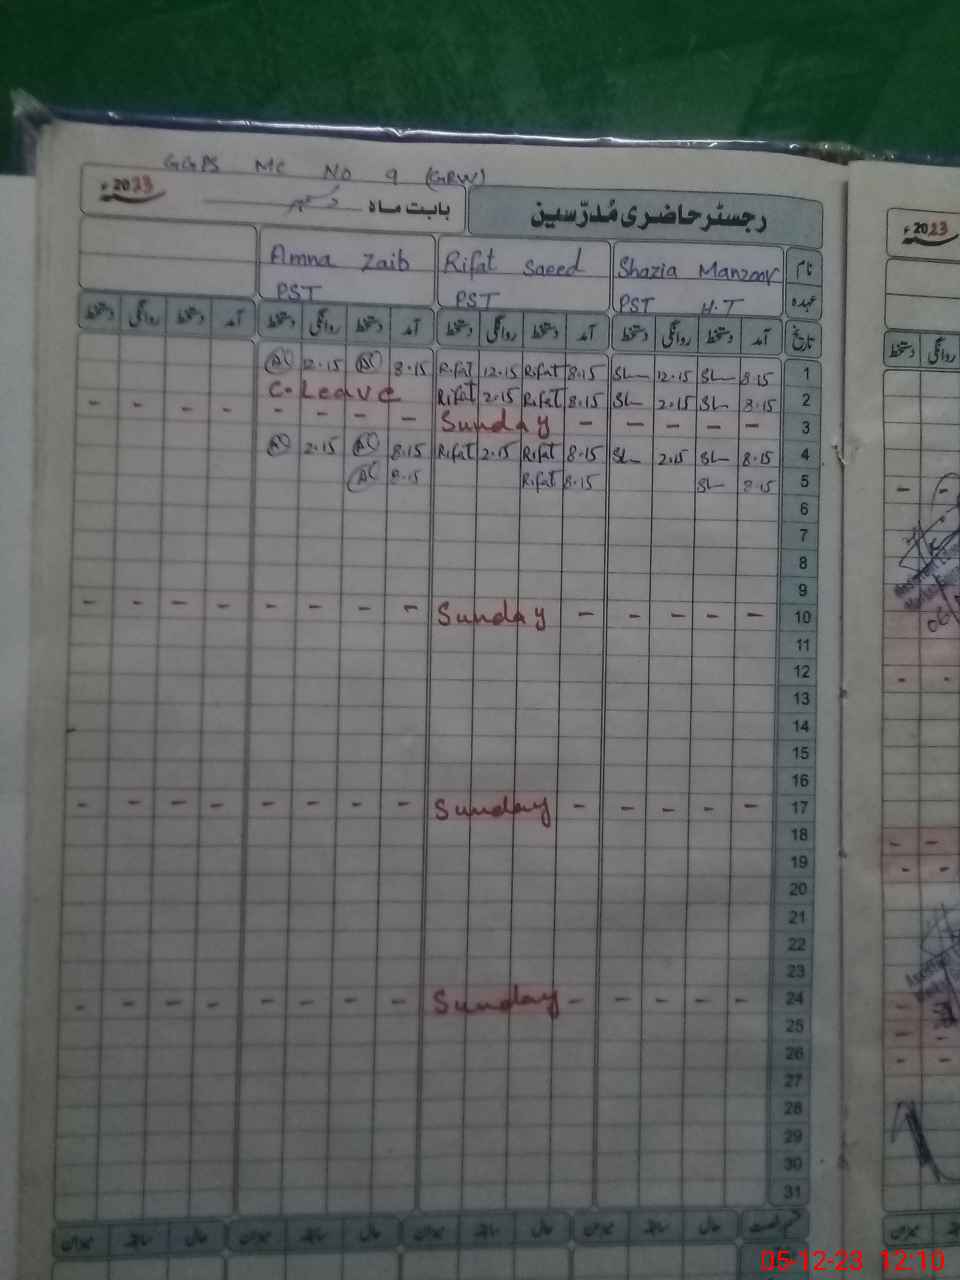 GGPS MC No 9 (GRW)
رجسٹر حاضری مُدرّسین
بابت ماہ دسمبر 2023ء
نام Shazia Manzoor Rifat Saeed Amna Zaib
عہدہ PST H.T PST PST
تاریخ آمد دستخط روانگی دستخط آمد دستخط روانگی دستخط آمد دستخط روانگی دستخط آمد دستخط روانگی دستخط
1 8.15 SL 12.15 SL 8.15 Rifat 12.15 Rifat 8.15 12.15
2 8.15 SL 2.15 SL 8.15 Rifat 2.15 Rifat C.Leave
3 - - - - - Sunday - - - - - - - -
4 8.15 SL 2.15 SL 8.15 Rifat 2.15 Rifat 8.15 2.15
5 8.15 SL 8.15 Rifat 8.15
6
7
8
9
10 - - - - - Sunday - - - - - - - -
11
12
13
14
15
16
17 - - - - - Sunday - - - - - - - -
18
19
20
21
22
23
24 - - - - - Sunday - - - - - - - -
25
26
27
28
29
30
31
حال سابقہ میزان حال سابقہ میزان حال سابقہ میزان حال سابقہ میزان
2023ء
روانگی دستخط
05-12-23 12:10